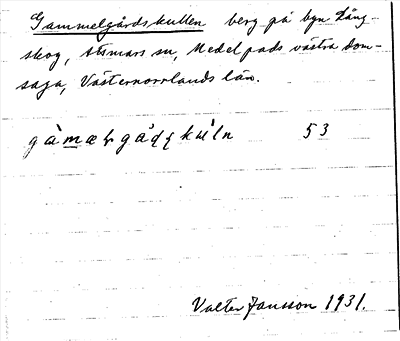 Gammelgårdskullen berg på byn Lång-
skog, Attmars sn, Medelpads västra dom-
saga, Västernorrlands län.
gàmæɫgåɖʂkuln 53
Valter Jansson 1931.